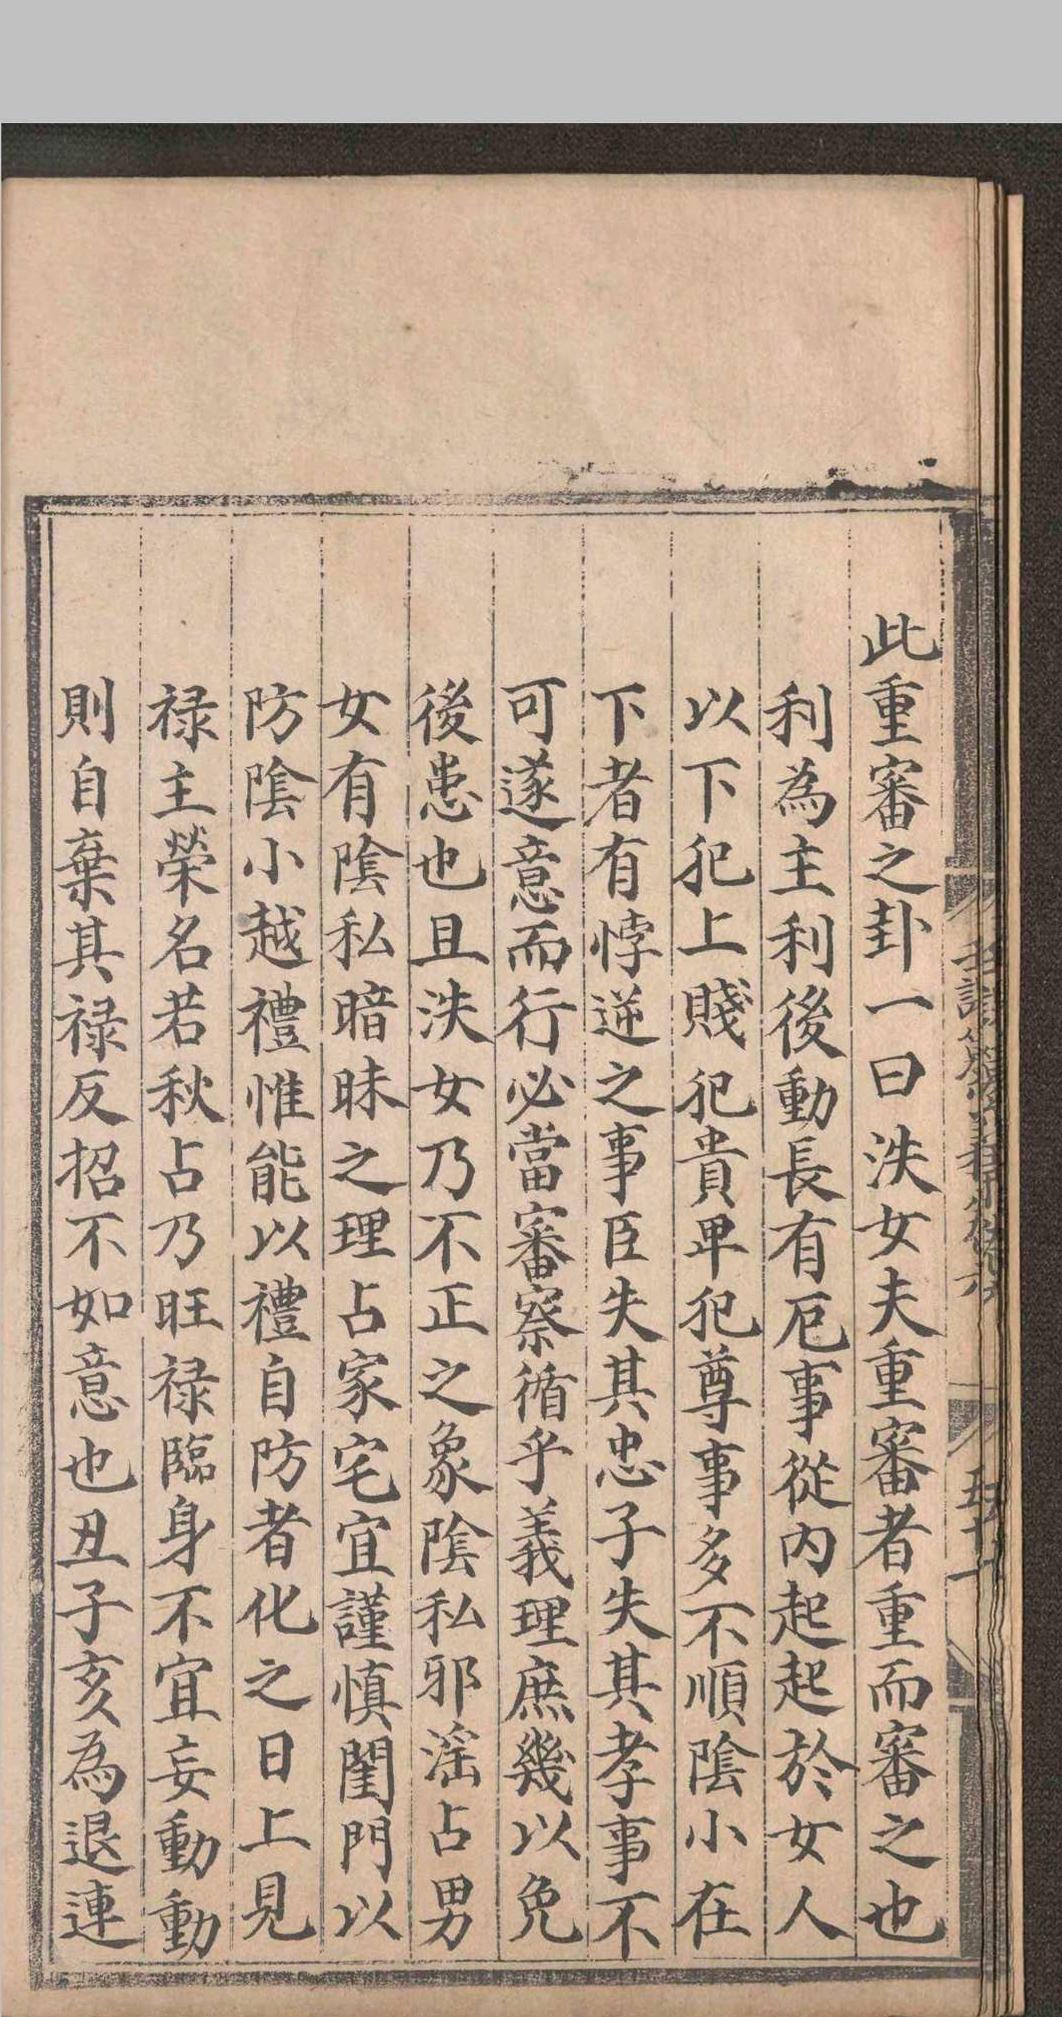 此重審之卦一曰泆女夫重審者重而審之也
利為主利後動長有厄事從內起起於女人
以下犯上賤犯貴卑犯尊事多不順陰小在
下者有悖逆之事臣失其忠子失其孝事不
可遂意而行必當審察循乎義理庶幾以免
後患也且泆女乃不正之象陰私邪淫占男
女有陰私暗昧之理占家宅宜謹慎閨門以
防陰小越禮惟能以禮自防者化之日上見
禄主榮名若秋占乃旺禄臨身不宜妄動動
則自棄其禄反招不如意也丑子亥為退連